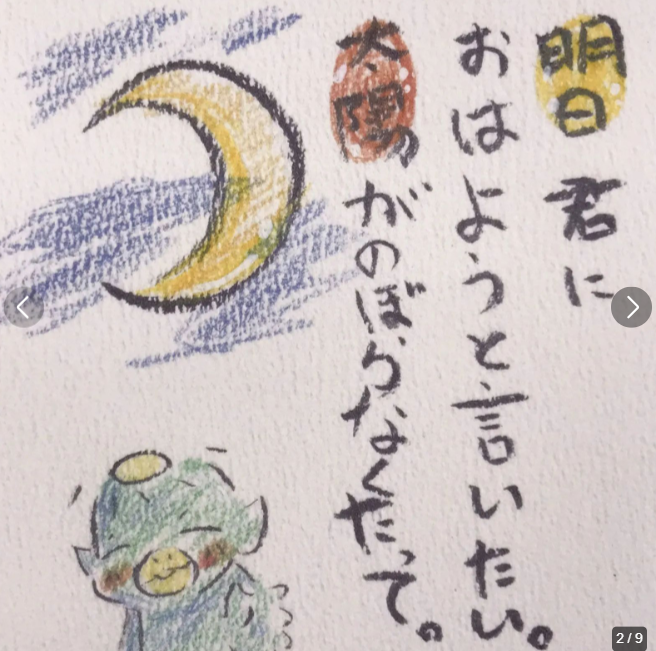 明日 君に
おはようと言いたい。
太陽がのぼらなくたって。
2/9